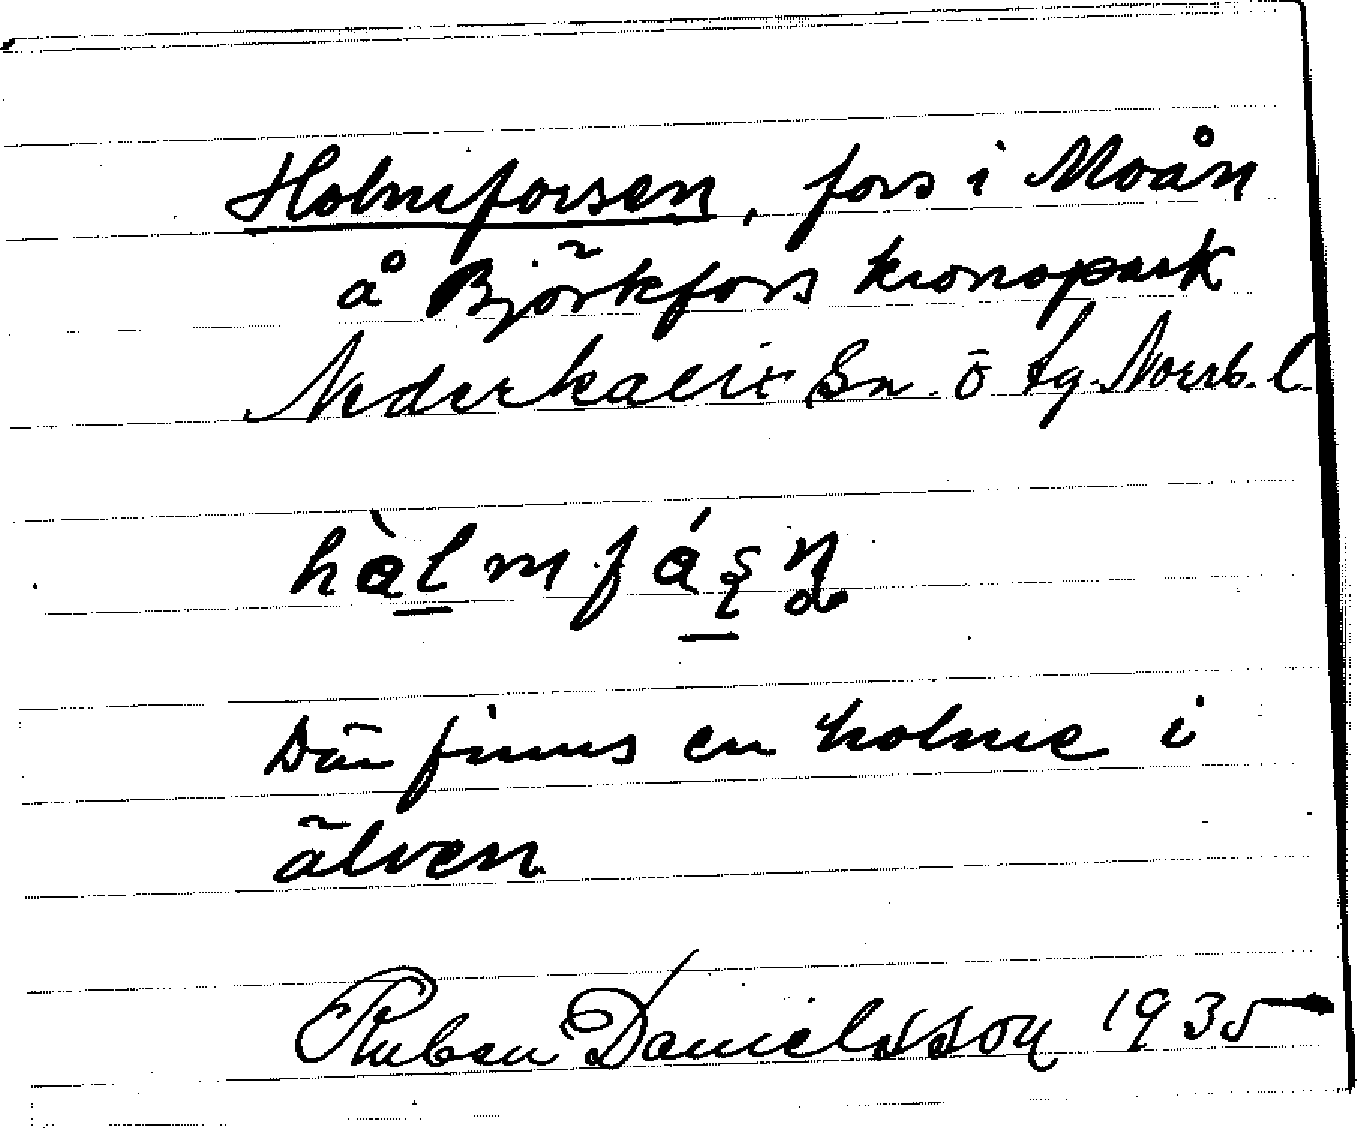 Holmforsen, fors i Moån
å Björkfors kronopark
Nederkalix Sn. ö tg. Norrb. l.
hàlmfáşn̥
Där finns en holme i
älven
Ruben Danielsson 1935